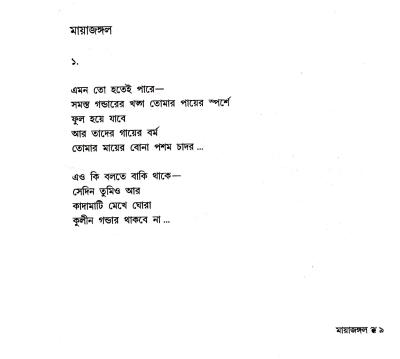 মায়াজঙ্গল
১.
এমন তো হতেই পারে—
সমস্ত গন্ডারের খড়্গ তোমার পায়ের স্পর্শে
ফুল হয়ে যাবে
আর তাদের গায়ের বর্ম
তোমার মায়ের বোনা পশম চাদর ...
এও কি বলতে বাকি থাকে—
সেদিন তুমিও আর
কাদামাটি মেখে ঘোরা
কুলীন গন্ডার থাকবে না ...
মায়াজঙ্গল ৯